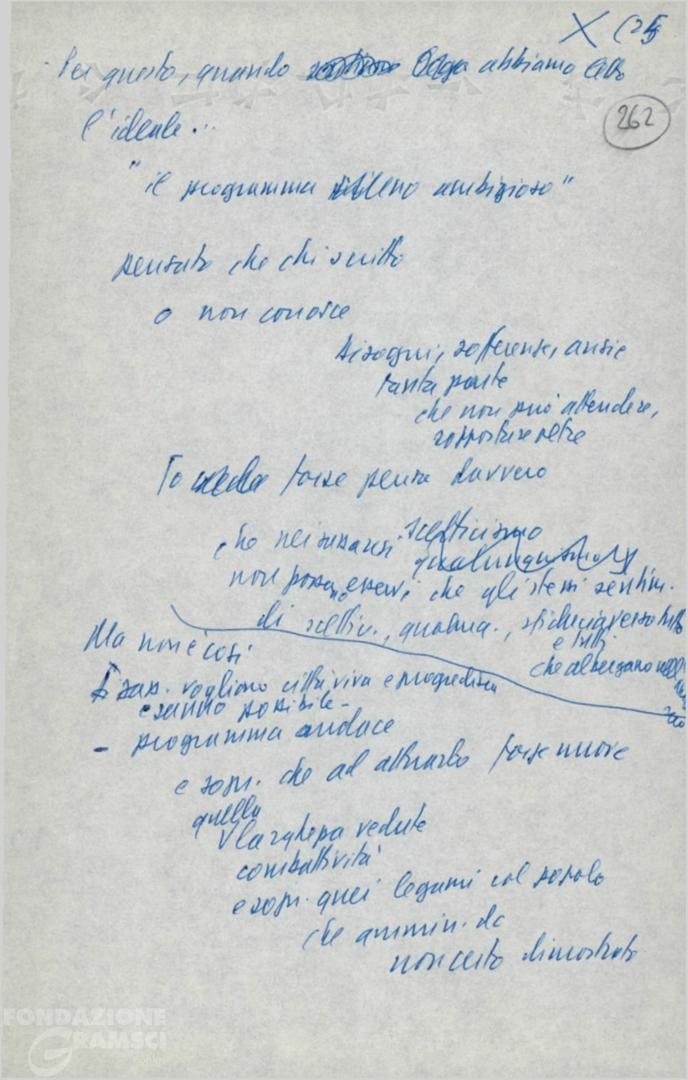 X (25
262
Per questo, quando oggi abbiamo letto
l'ideale...
"il programma ambizioso"
pensato che chi scritto
o non conosce
bisogni, sofferenze, ansie
tanta parte
che non può attendere,
sopportare oltre
forse pensa davvero
che nei sassaresi scetticismo
qualunquismo
non possano esservi che gli stessi sentim.
di scettic., qualunq., sfiducia verso tutto
e tutti
che albergano
Ma non è così
sass. vogliono città viva e progredisca
e sanno possibile -
- programma audace
e sopr. che ad attuarlo forze nuove
quella
larghezza vedute
combattività
e sopr. quei legami col popolo
che ammin. dc
non certo dimostrato
FONDAZIONE
GRAMSCI